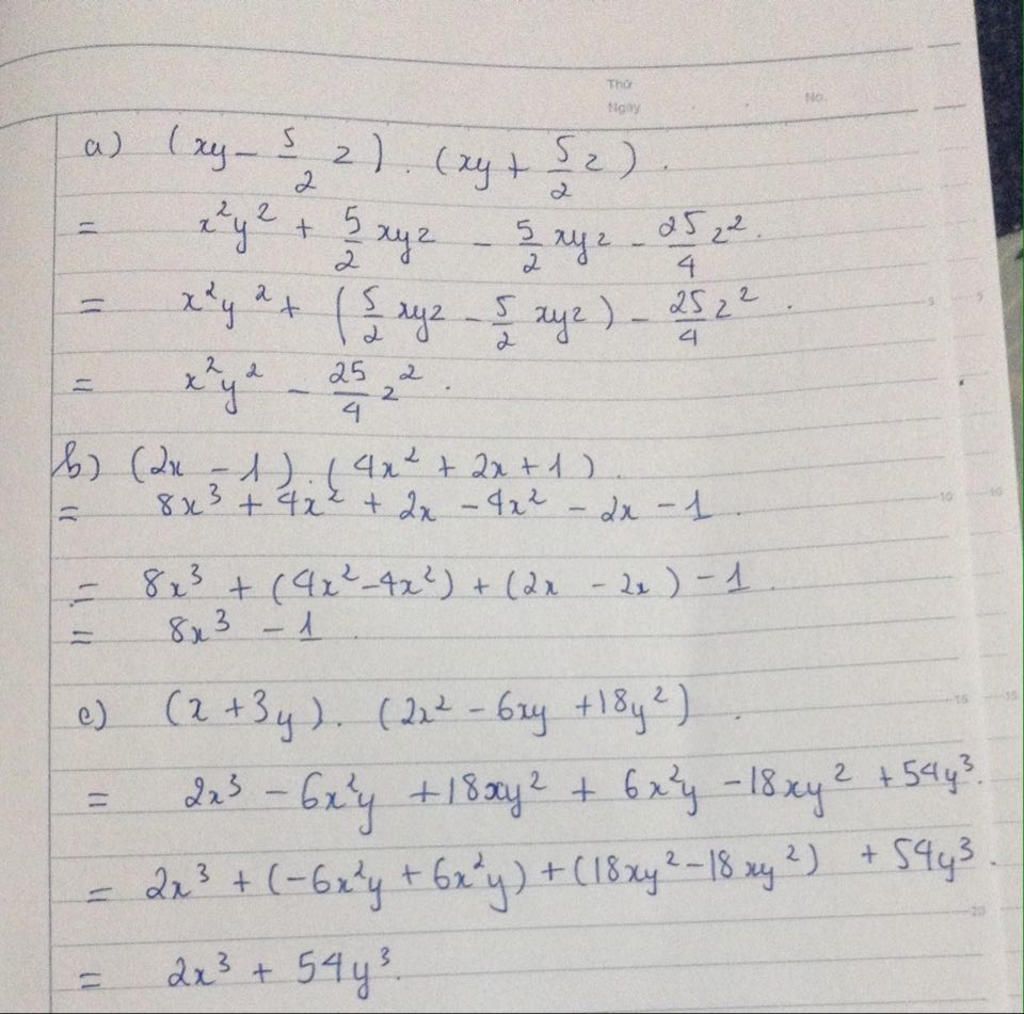 Thứ
Ngày
No.
a) (xy - 5/2 z) . (xy + 5/2 z) .
= x²y² + 5/2 xyz - 5/2 xyz - 25/4 z² .
= x²y² + (5/2 xyz - 5/2 xyz) - 25/4 z² .
= x²y² - 25/4 z² .
b) (2x - 1) . (4x² + 2x + 1) .
= 8x³ + 4x² + 2x - 4x² - 2x - 1 .
= 8x³ + (4x² - 4x²) + (2x - 2x) - 1 .
= 8x³ - 1 .
c) (x + 3y) . (2x² - 6xy + 18y²) .
= 2x³ - 6x²y + 18xy² + 6x²y - 18xy² + 54y³ .
= 2x³ + (-6x²y + 6x²y) + (18xy² - 18xy²) + 54y³ .
= 2x³ + 54y³ .
5 5
10 10
15 15
20